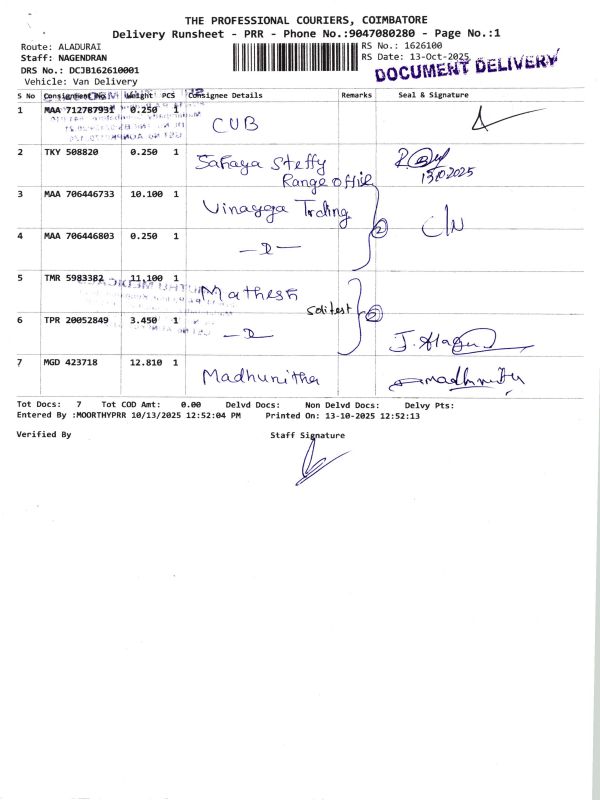 THE PROFESSIONAL COURIERS, COIMBATORE
Delivery Runsheet - PRR - Phone No.:9047080280 - Page No.:1
Route: ALADURAI
RS No.: 1626100
Staff: NAGENDRAN
RS Date: 13-Oct-2025
DRS No.: DCJB162610001
DOCUMENT DELIVERY
Vehicle: Van Delivery
S No Consignment No. Weight PCS Consignee Details Remarks Seal & Signature
1 MAA 712787931 0.250 1 CUB
2 TKY 508820 0.250 1 Sahaya Steffy
Range office
13/10/2025
3 MAA 706446733 10.100 1 Vinayga Trding
4 MAA 706446803 0.250 1 2 C/N
5 TMR 5983382 11.100 1 Mathesh
6 TPR 20052849 3.450 1 J. Alagu
7 MGD 423718 12.810 1 Madhunitha
Tot Docs: 7 Tot COD Amt: 0.00 Delvd Docs: Non Delvd Docs: Delvy Pts:
Entered By :MOORTHYPRR 10/13/2025 12:52:04 PM Printed On: 13-10-2025 12:52:13
Verified By Staff Signature